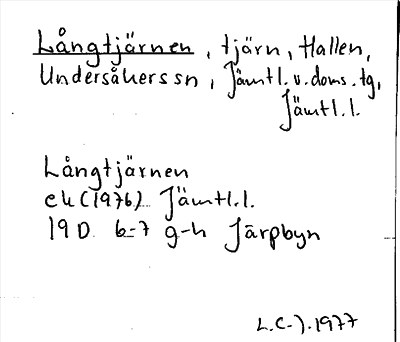 Långtjärnen, tjärn, Hallen,
Undersåkers sn, Jämtl. v. doms. tg,
Jämtl. l.
Långtjärnen
ek (1976) Jämtl. l.
19D 6-7 g-h Järpbyn
L.C-J. 1977